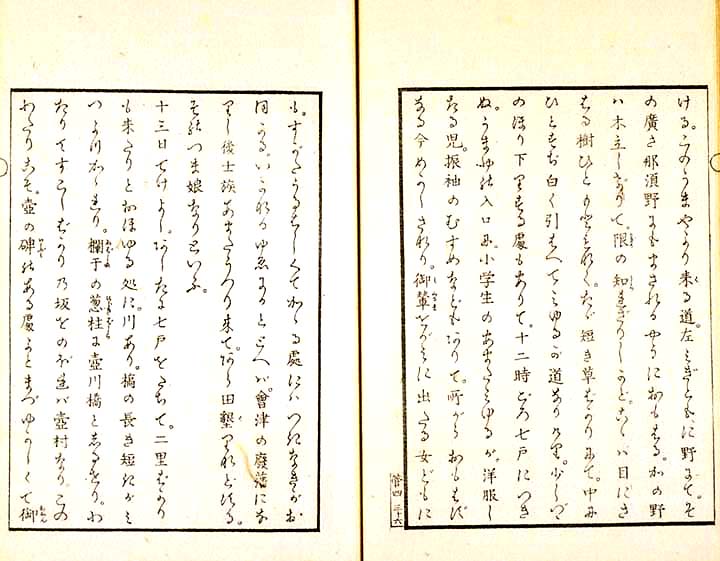 ける。このうまやより来る道。左みぎとも。に野にて。そ
の廣さ那須野にもまされるやうにおもはる。かの野
ハ木立しげりて。限の知られざりしかど。こゝハ目にさ
はる樹ひとつ なく。たゞ短き草むらのミにて。中に
ひとすぢ白く引はへてミゆるが道なりけり。少しづゝ
のぼり下りする處もありて。十二時ごろ七戸につき
ぬ。うまやの入口に。小学生のあまたミゆるが。洋服し
たる児。振袖のむすめなどもありて。所がらおもはず
なる今めかしされり。御輦ををがミに出たる女どもに
管四 三十六
も。すがたうるはしくてかゝる處にハつきなきがお
ほかる。いかなるゆゑにかととへバ。會津の廢藩にな
りし後士族あまたうつり来て。こゝら田墾りなどせる。
そのつま娘なりといふ。
十三日てけよし。あしたに七戸をたちて。二里ばかり
も来たりとおほゆる処に。川あり。橋の長き短きがミ
つよつかゝれり。欄干の葱柱に壺川橋としるせり。わ
たりてすこしばかり乃坂をのぼれバ壺村なりこの
わたりこそ。壺の碑のある處かとまづゆかしくて御